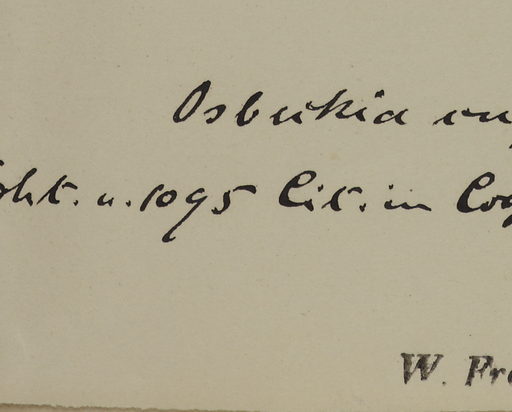 Osbeckia
n. 1095 Cit. in Cog
W. Fr